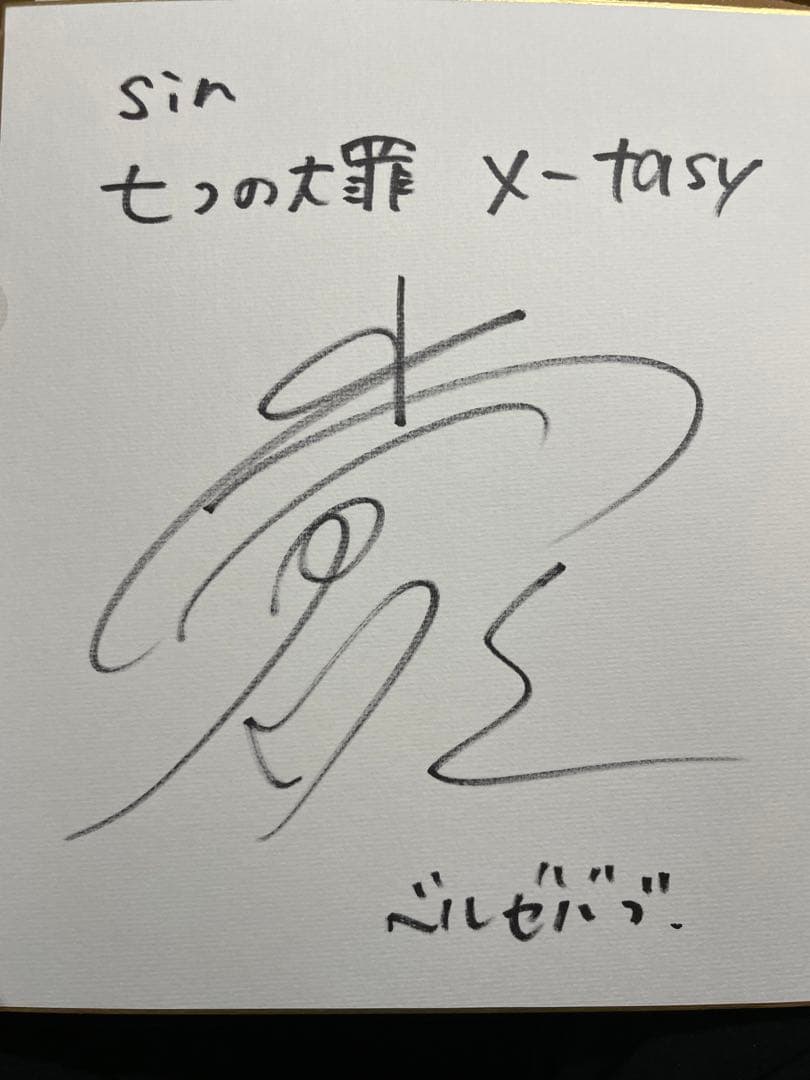 sin
七つの大罪 X-tasy
ベルゼバブ.